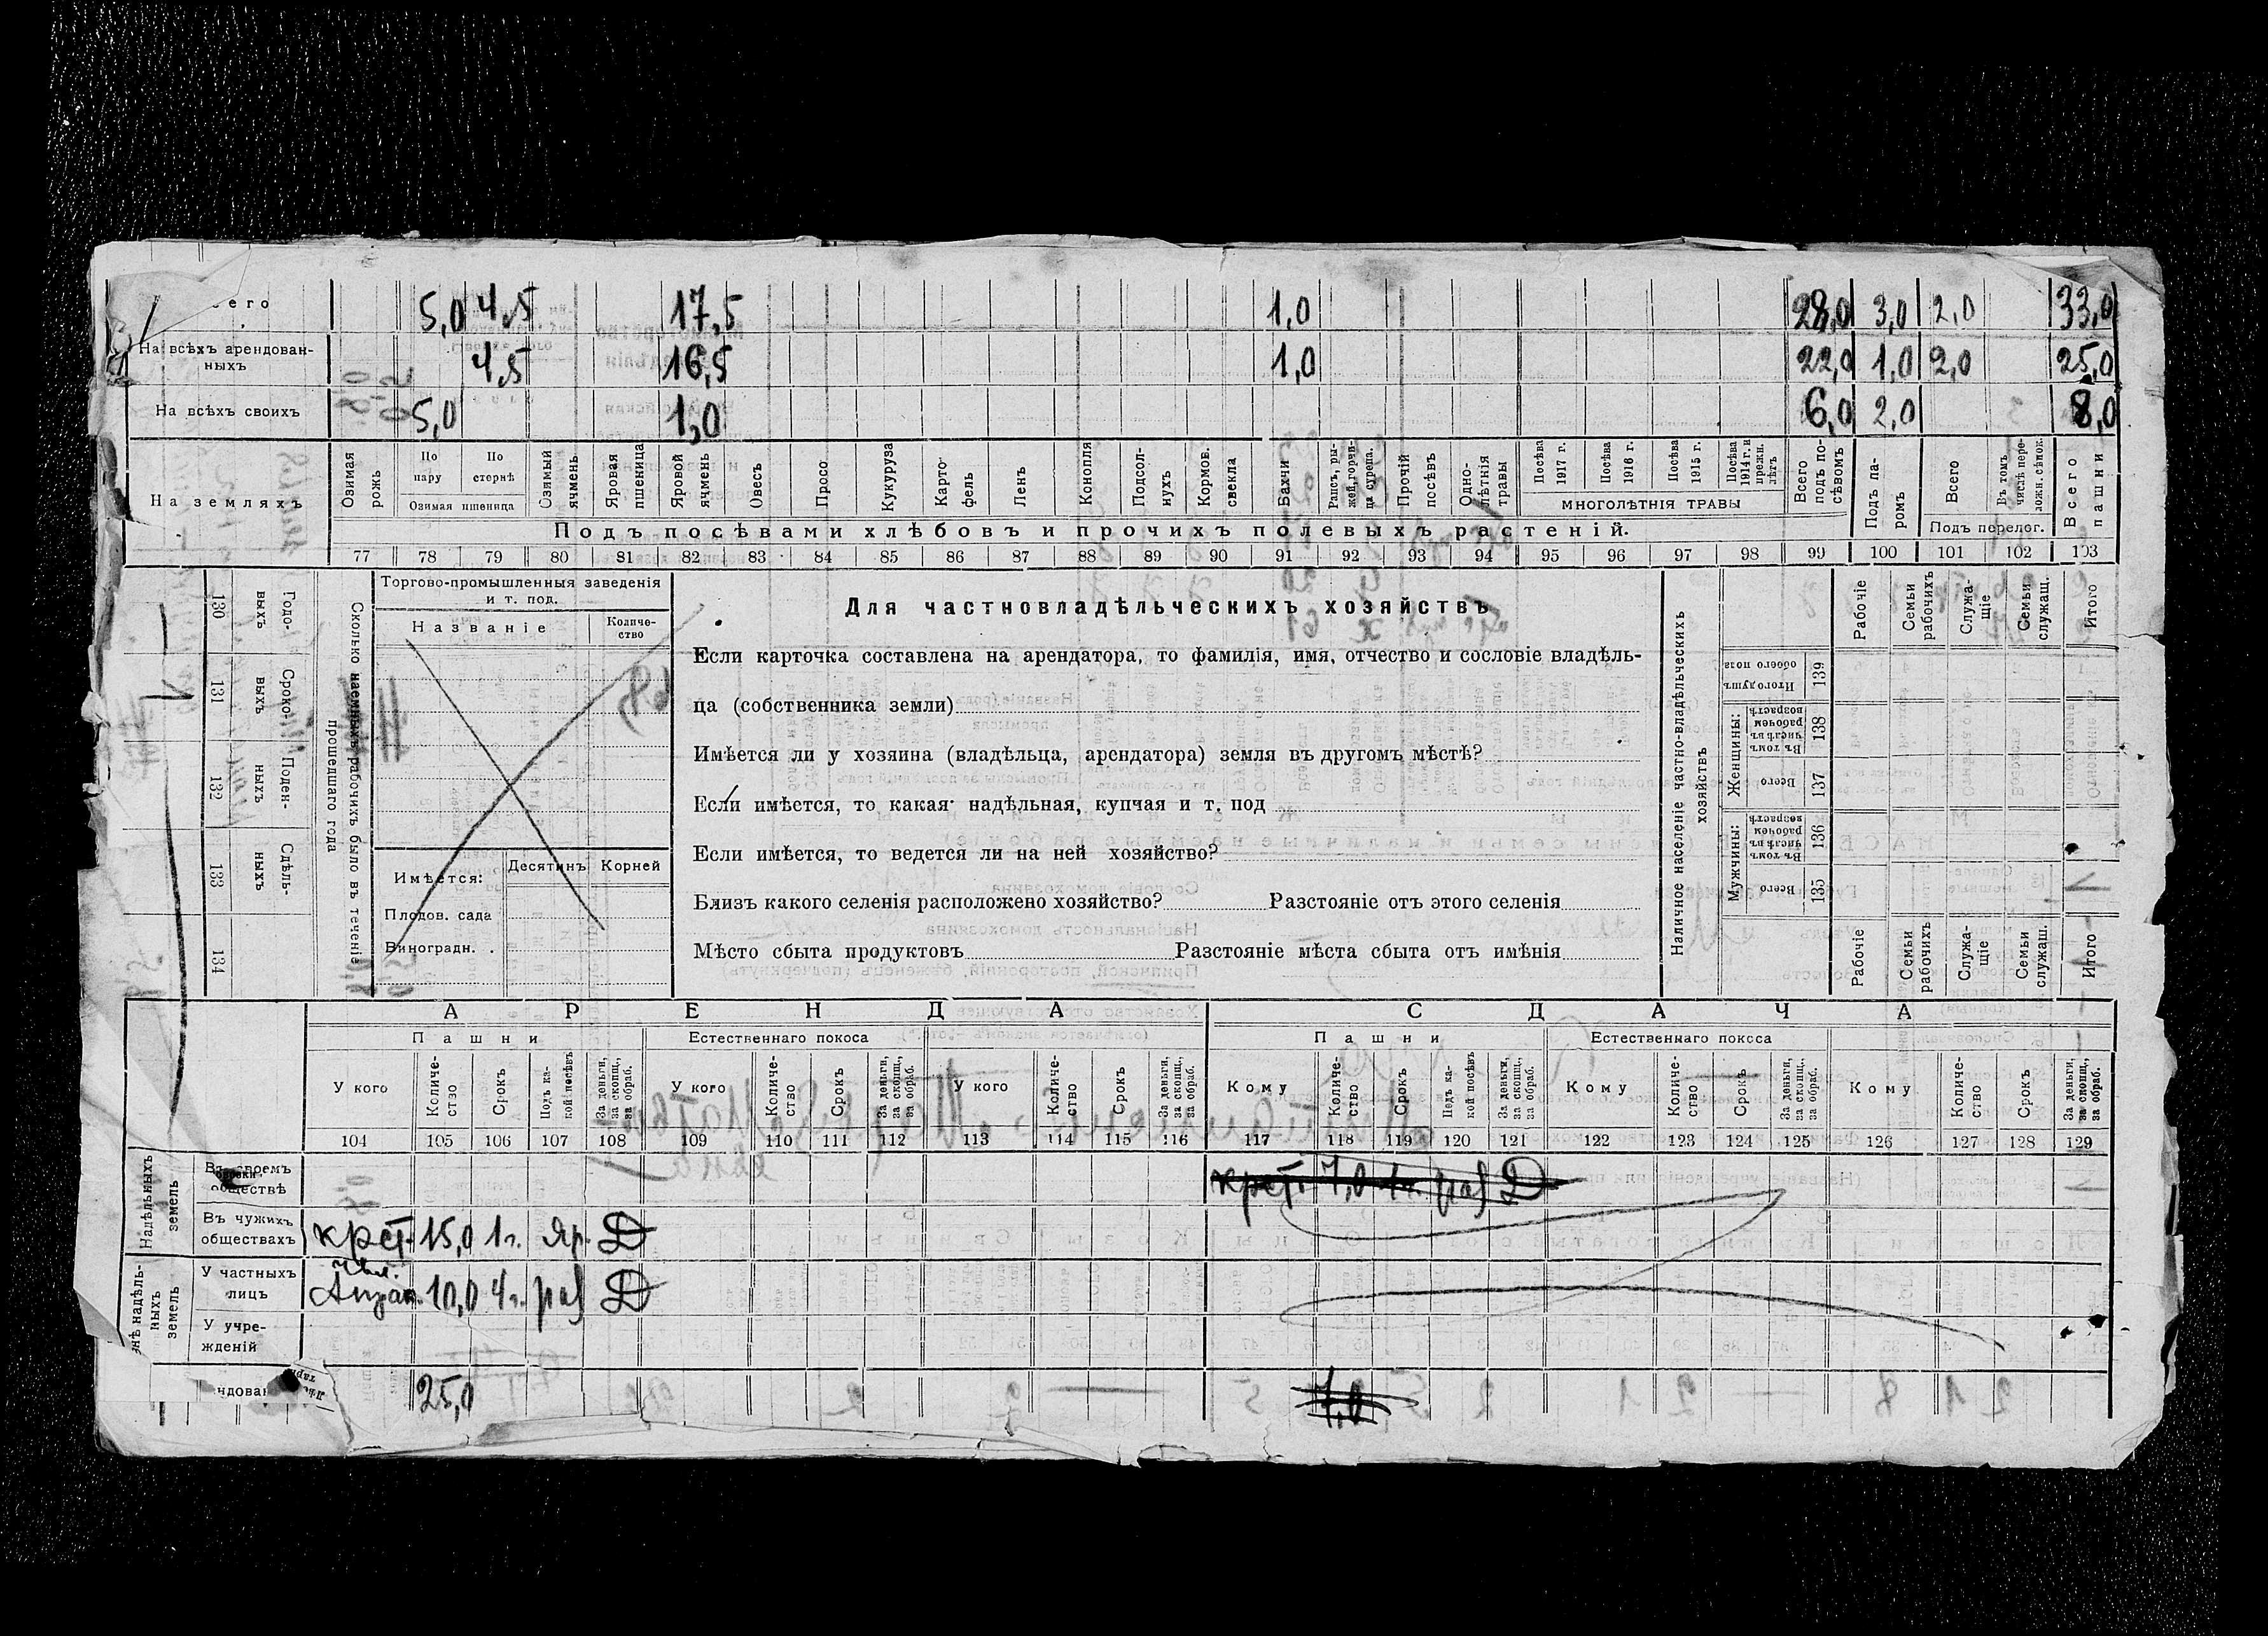 его 5,0 4,5 17,5 1,0 28,0 3,0 2,0 33,0
На всѣхъ арендован-
ныхъ 4,5 16,5 1,0 22,0 1,0 2,0 25,0
На всѣхъ своихъ 5,0 1,0 6,0 2,0 8,0
На земляхъ
Озимая рожь
По пару
По стернѣ
Озимая пшеница
Озимый ячмень
Яровая пшеница
Яровой ячмень
Овесъ
Просо
Кукуруза
Карто-
фель
Ленъ
Конопля
Подсол-
нухъ
Кормов. свекла
Бахчи
Рапсъ, ры-
жей, горчи-
ца сурепа.
Прочій посѣвъ
Одно-
лѣтнія травы
Посѣва 1917 г.
Посѣва 1916 г.
Посѣва 1915 г.
Посѣва 1914 г. и прежн. лѣтъ
МНОГОЛѢТНІЯ ТРАВЫ
Всего подъ по-
сѣвомъ
Подъ па-
ромъ
Всего
Въ томъ числѣ пере-
ложн. сѣнок.
Подъ перелог.
Всего пашни
Подъ посѣвами хлѣбовъ и прочихъ полевыхъ растеній.
77 78 79 80 81 82 83 84 85 86 87 88 89 90 91 92 93 94 95 96 97 98 99 100 101 102 103
Годо-
выхъ
130
Сроко-
выхъ
131
Поден-
ныхъ
132
Сдѣль-
ныхъ
133
134
Сколько наемныхъ рабочихъ было въ теченіе
прошедшаго года
Торгово-промышленныя заведенія
и т. под.
Названіе
Количе-
ство
Имѣется:
Десятинъ
Корней
Плодов. сада
Виноградн. .
Для частновладѣльческихъ хозяйствъ
Если карточка составлена на арендатора, то фамилія, имя, отчество и сословіе владѣль-
ца (собственника земли)
Имѣется ли у хозяина (владѣльца, арендатора) земля въ другомъ мѣстѣ?
Если имѣется, то какая надѣльная, купчая и т. под
Если имѣется, то ведется ли на ней хозяйство?
Близъ какого селенія расположено хозяйство? Разстояніе отъ этого селенія
Мѣсто сбыта продуктовъ Разстояніе мѣста сбыта отъ имѣнія
Наличное населеніе частно-владѣльческихъ
хозяйствъ
Рабочіе
Семьи рабочихъ
Служа-
щіе
Семьи служащ.
Итого
Итого душъ обоего пола
139
Женщины:
Въ томъ числѣ въ рабочем возрастѣ
138
Всего
137
Мужчины:
Въ томъ числѣ въ рабочем возрастѣ
136
Всего
135
Рабочіе
Семьи рабочихъ
Служа-
щіе
Семьи служащ.
Итого
АРЕНДА
СДАЧА
Пашни
Естественнаго покоса
Пашни
Естественнаго покоса
У кого
Количе-
ство
Срокъ
Подъ ка-
кой посѣвъ
За деньги, за скопщ., за обраб.
У кого
Количе-
ство
Срокъ
За деньги, за скопщ., за обраб.
У кого
Количе-
ство
Срокъ
За деньги, за скопщ., за обраб.
Кому
Количе-
ство
Срокъ
Подъ ка-
кой посѣвъ
За деньги, за скопщ., за обраб.
Кому
Количе-
ство
Срокъ
За деньги, за скопщ., за обраб.
Кому
Количе-
ство
Срокъ
За деньги, за скопщ., за обраб.
104 105 106 107 108 109 110 111 112 113 114 115 116 117 118 119 120 121 122 123 124 125 126 127 128 129
Надѣльныхъ
земель
Въ своемъ
обществѣ
крст. 7,0 1г. раз Д
Въ чужихъ
обществахъ
крст. 15,0 1г. яр. Д
нѣ надѣль-
ныхъ
земель
У частныхъ
лицъ
10,0 4г. раз Д
У учре-
жденій
ндован
25,0
7,0